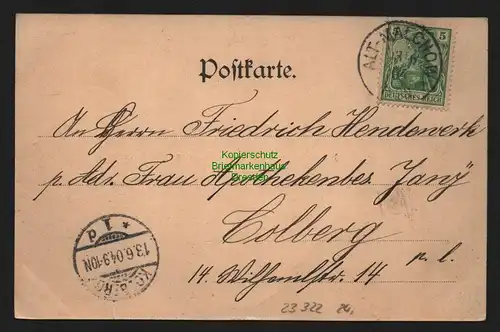 Postkarte.
ALT-MALCHOW
5
DEUTSCHES REICH
An Herrn Friedrich Hendewerk
Kopierschutz
Briefmarkenhaus
Dresden
p. Adr. Frau Apothekenbes. Janz
Colberg
14. Wilhelmstr. 14
13.6.04.9-10N
23 322